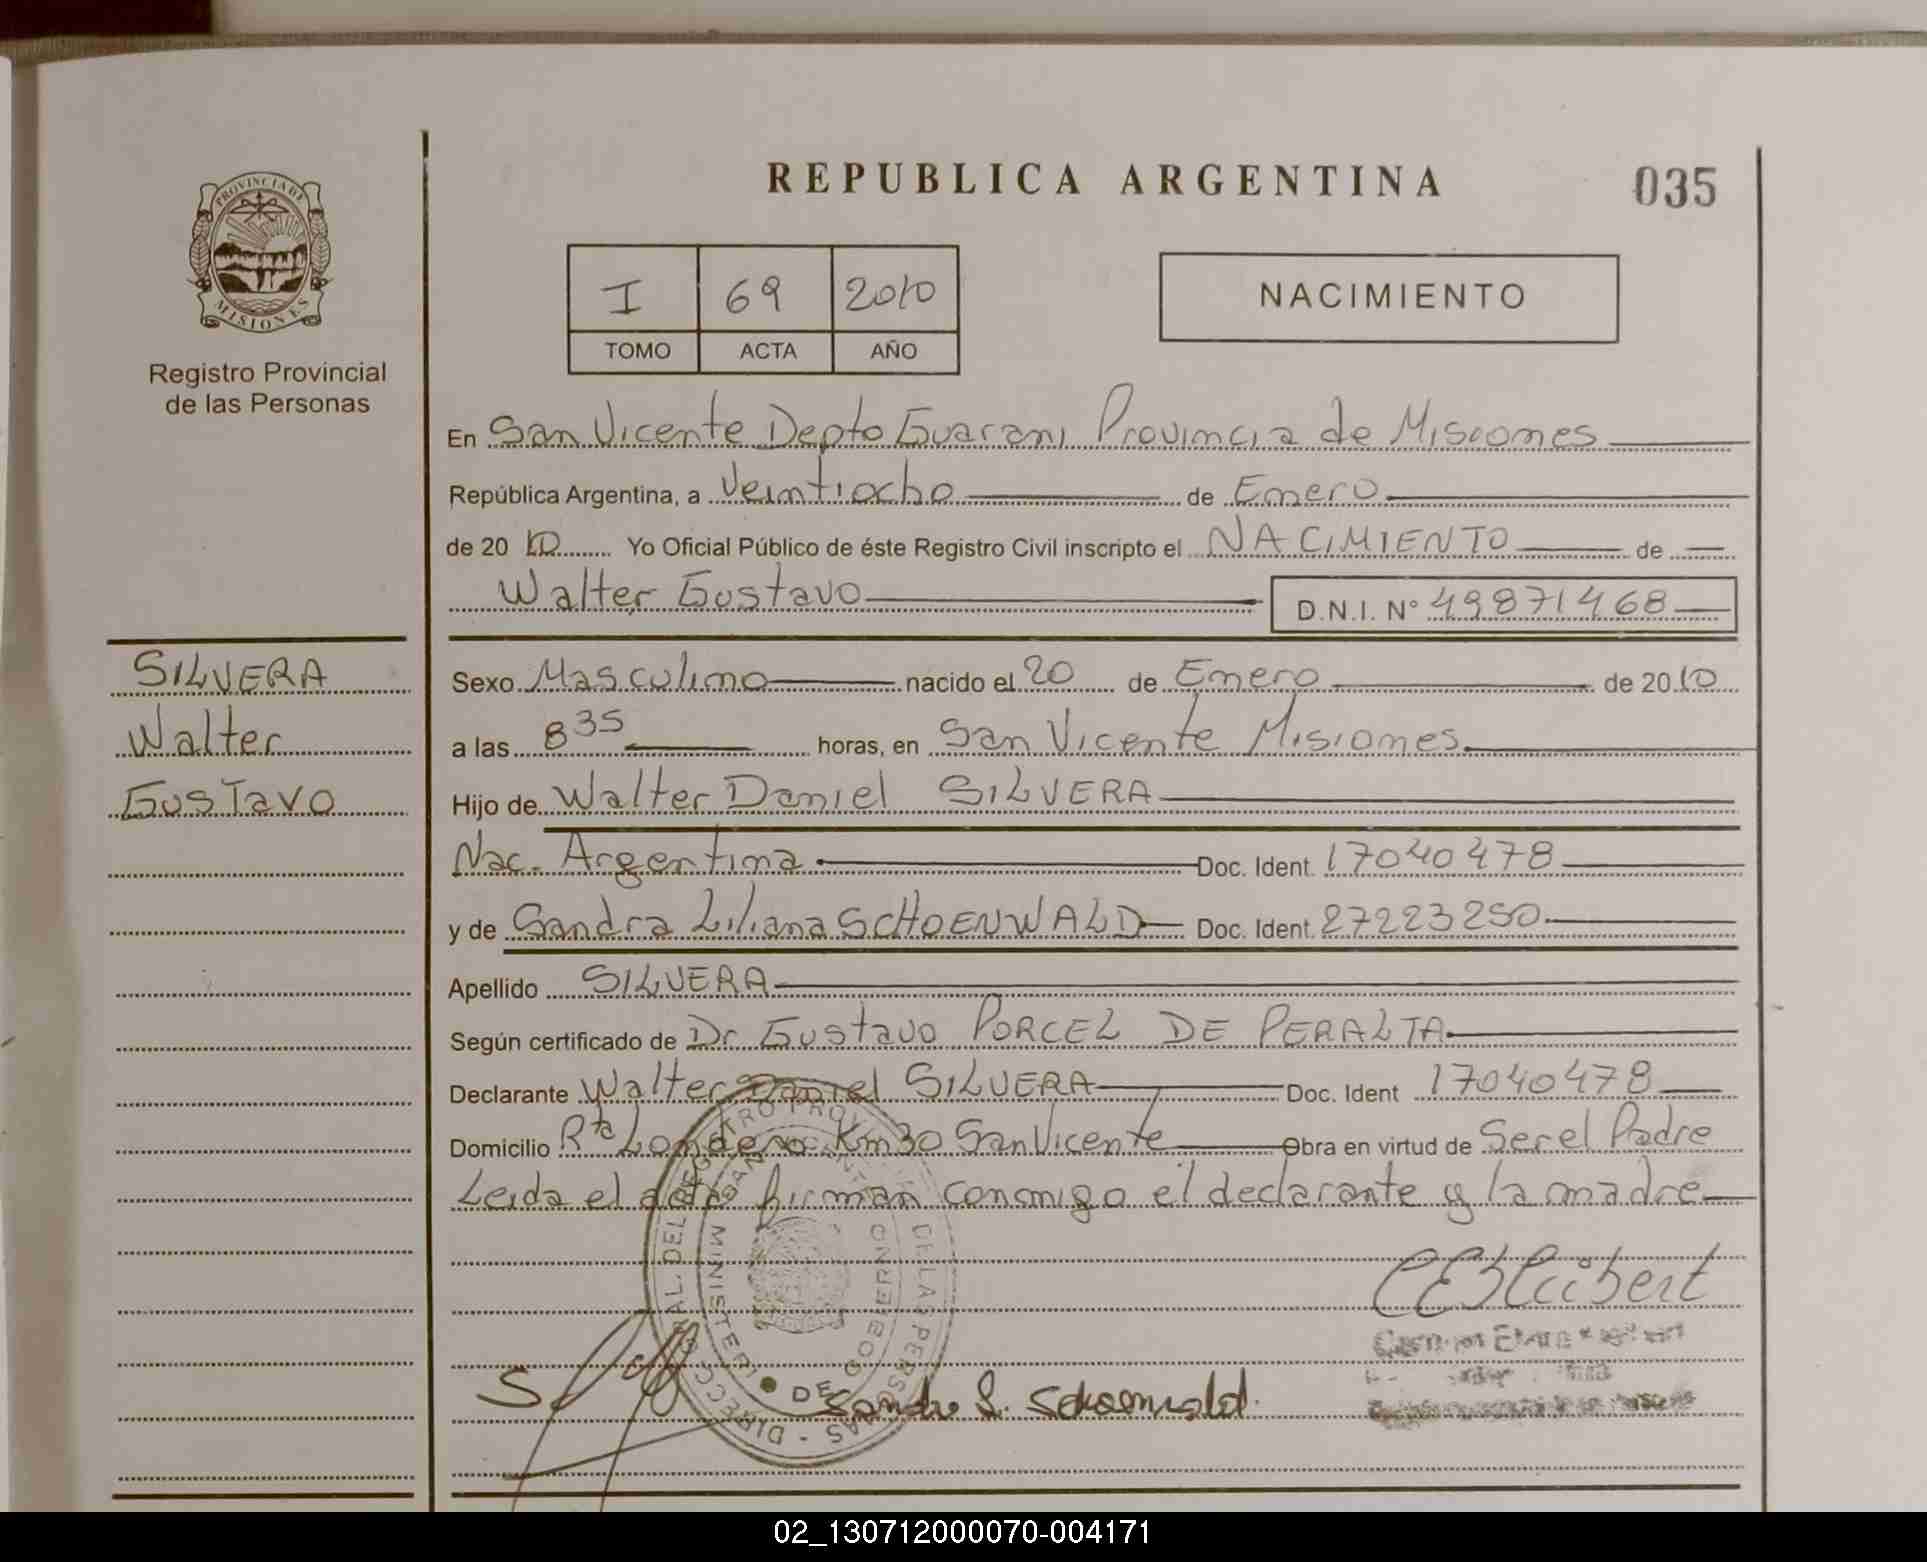 REPUBLICA ARGENTINA
035
PROVINCIA DE
MISIONES
Registro Provincial
de las Personas
I 69 2010
TOMO ACTA AÑO
NACIMIENTO
En San Vicente Depto Guarani Provincia de Misiones
República Argentina, a Veintiocho de Enero
de 20 10 Yo Oficial Público de éste Registro Civil inscripto el NACIMIENTO de
Walter Gustavo D.N.I. Nº 49871468
SILVERA
Walter
Gustavo
Sexo Masculino nacido el 20 de Enero de 2010
a las 8 35 horas, en San Vicente Misiones
Hijo de Walter Daniel SILVERA
Nac. Argentina Doc. Ident. 17040478
y de Sandra Liliana SCHOENWALD Doc. Ident. 27223250
Apellido SILVERA
Según certificado de Dr Gustavo PORCEL DE PERALTA
Declarante Walter Daniel SILVERA Doc. Ident 17040478
Domicilio Rta Londero Km30 San Vicente Obra en virtud de Ser el Padre
Leida el acta firman conmigo el declarante y la madre
DE LAS PERSONAS
MINISTERI
DE GOBIERNO
Sandra L. Schoenwald
02_130712000070-004171